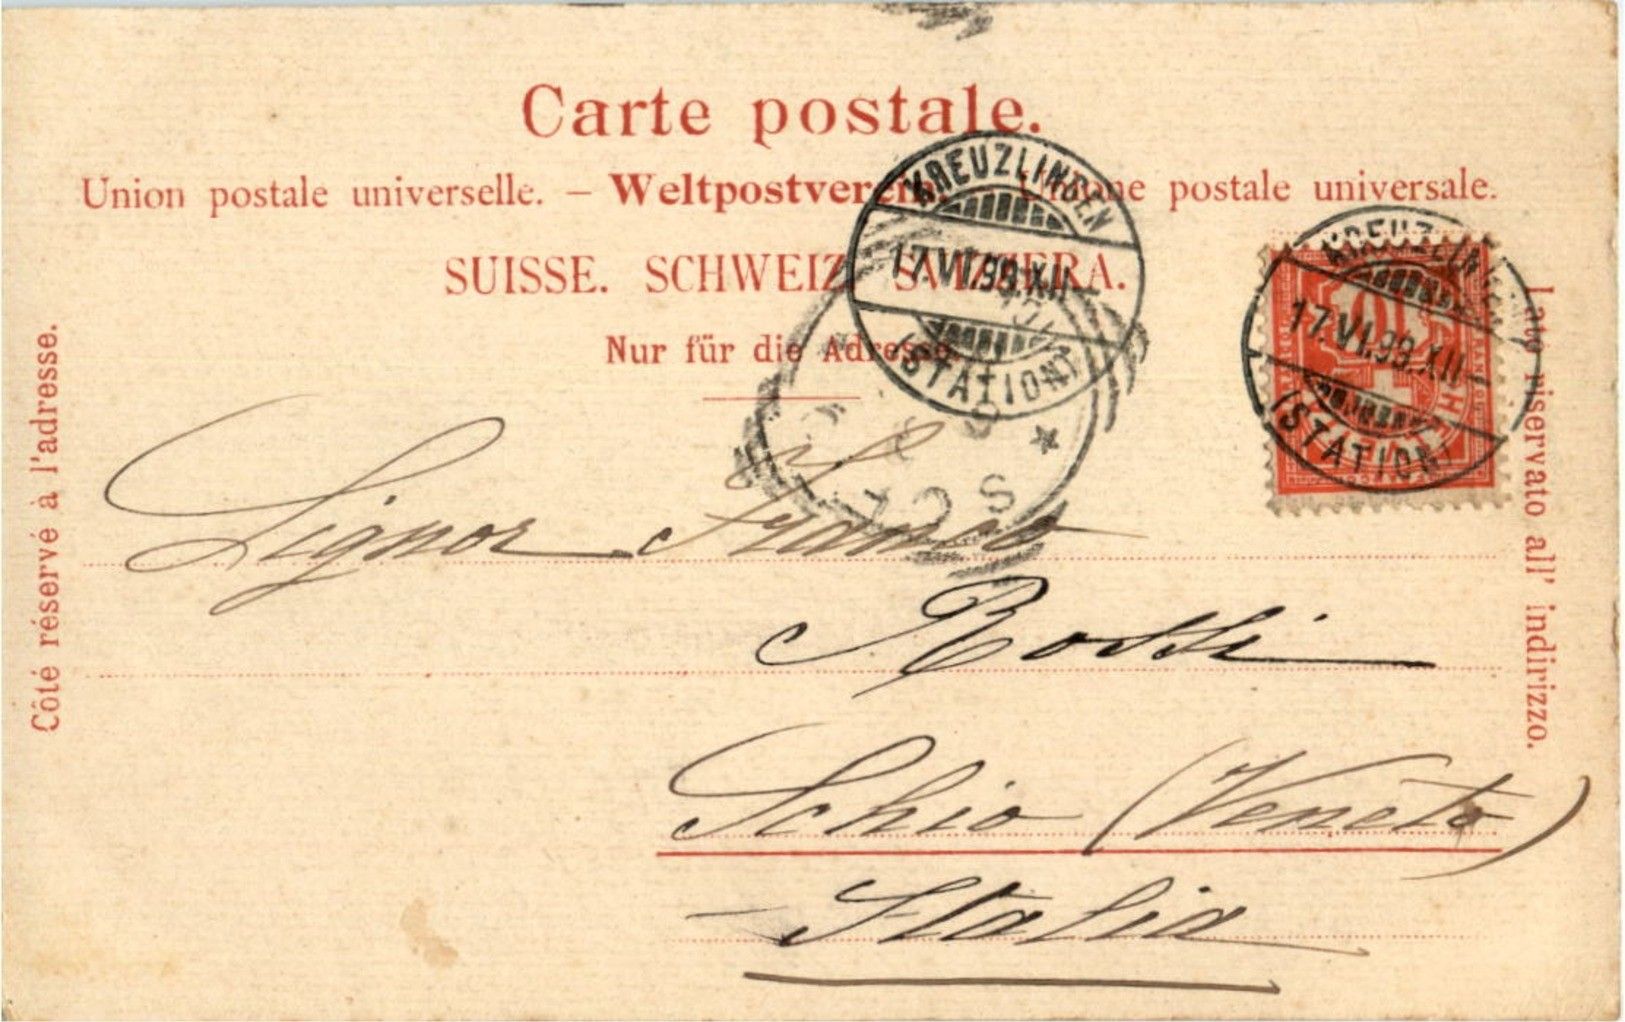 Carte postale.
Union postale universelle. – Weltpostverein. – Unione postale universale.
SUISSE. SCHWEIZ. SVIZZERA.
Nur für die Adresse.
Côté réservé à l'adresse.
Lato riservato all' indirizzo.
KREUZLINGEN
17.VI.99.XII
(STATION)
KREUZLINGEN
17.VI.99.XII
(STATION)
10
Signor Franco
Rossi
Schio (Veneto)
Italia